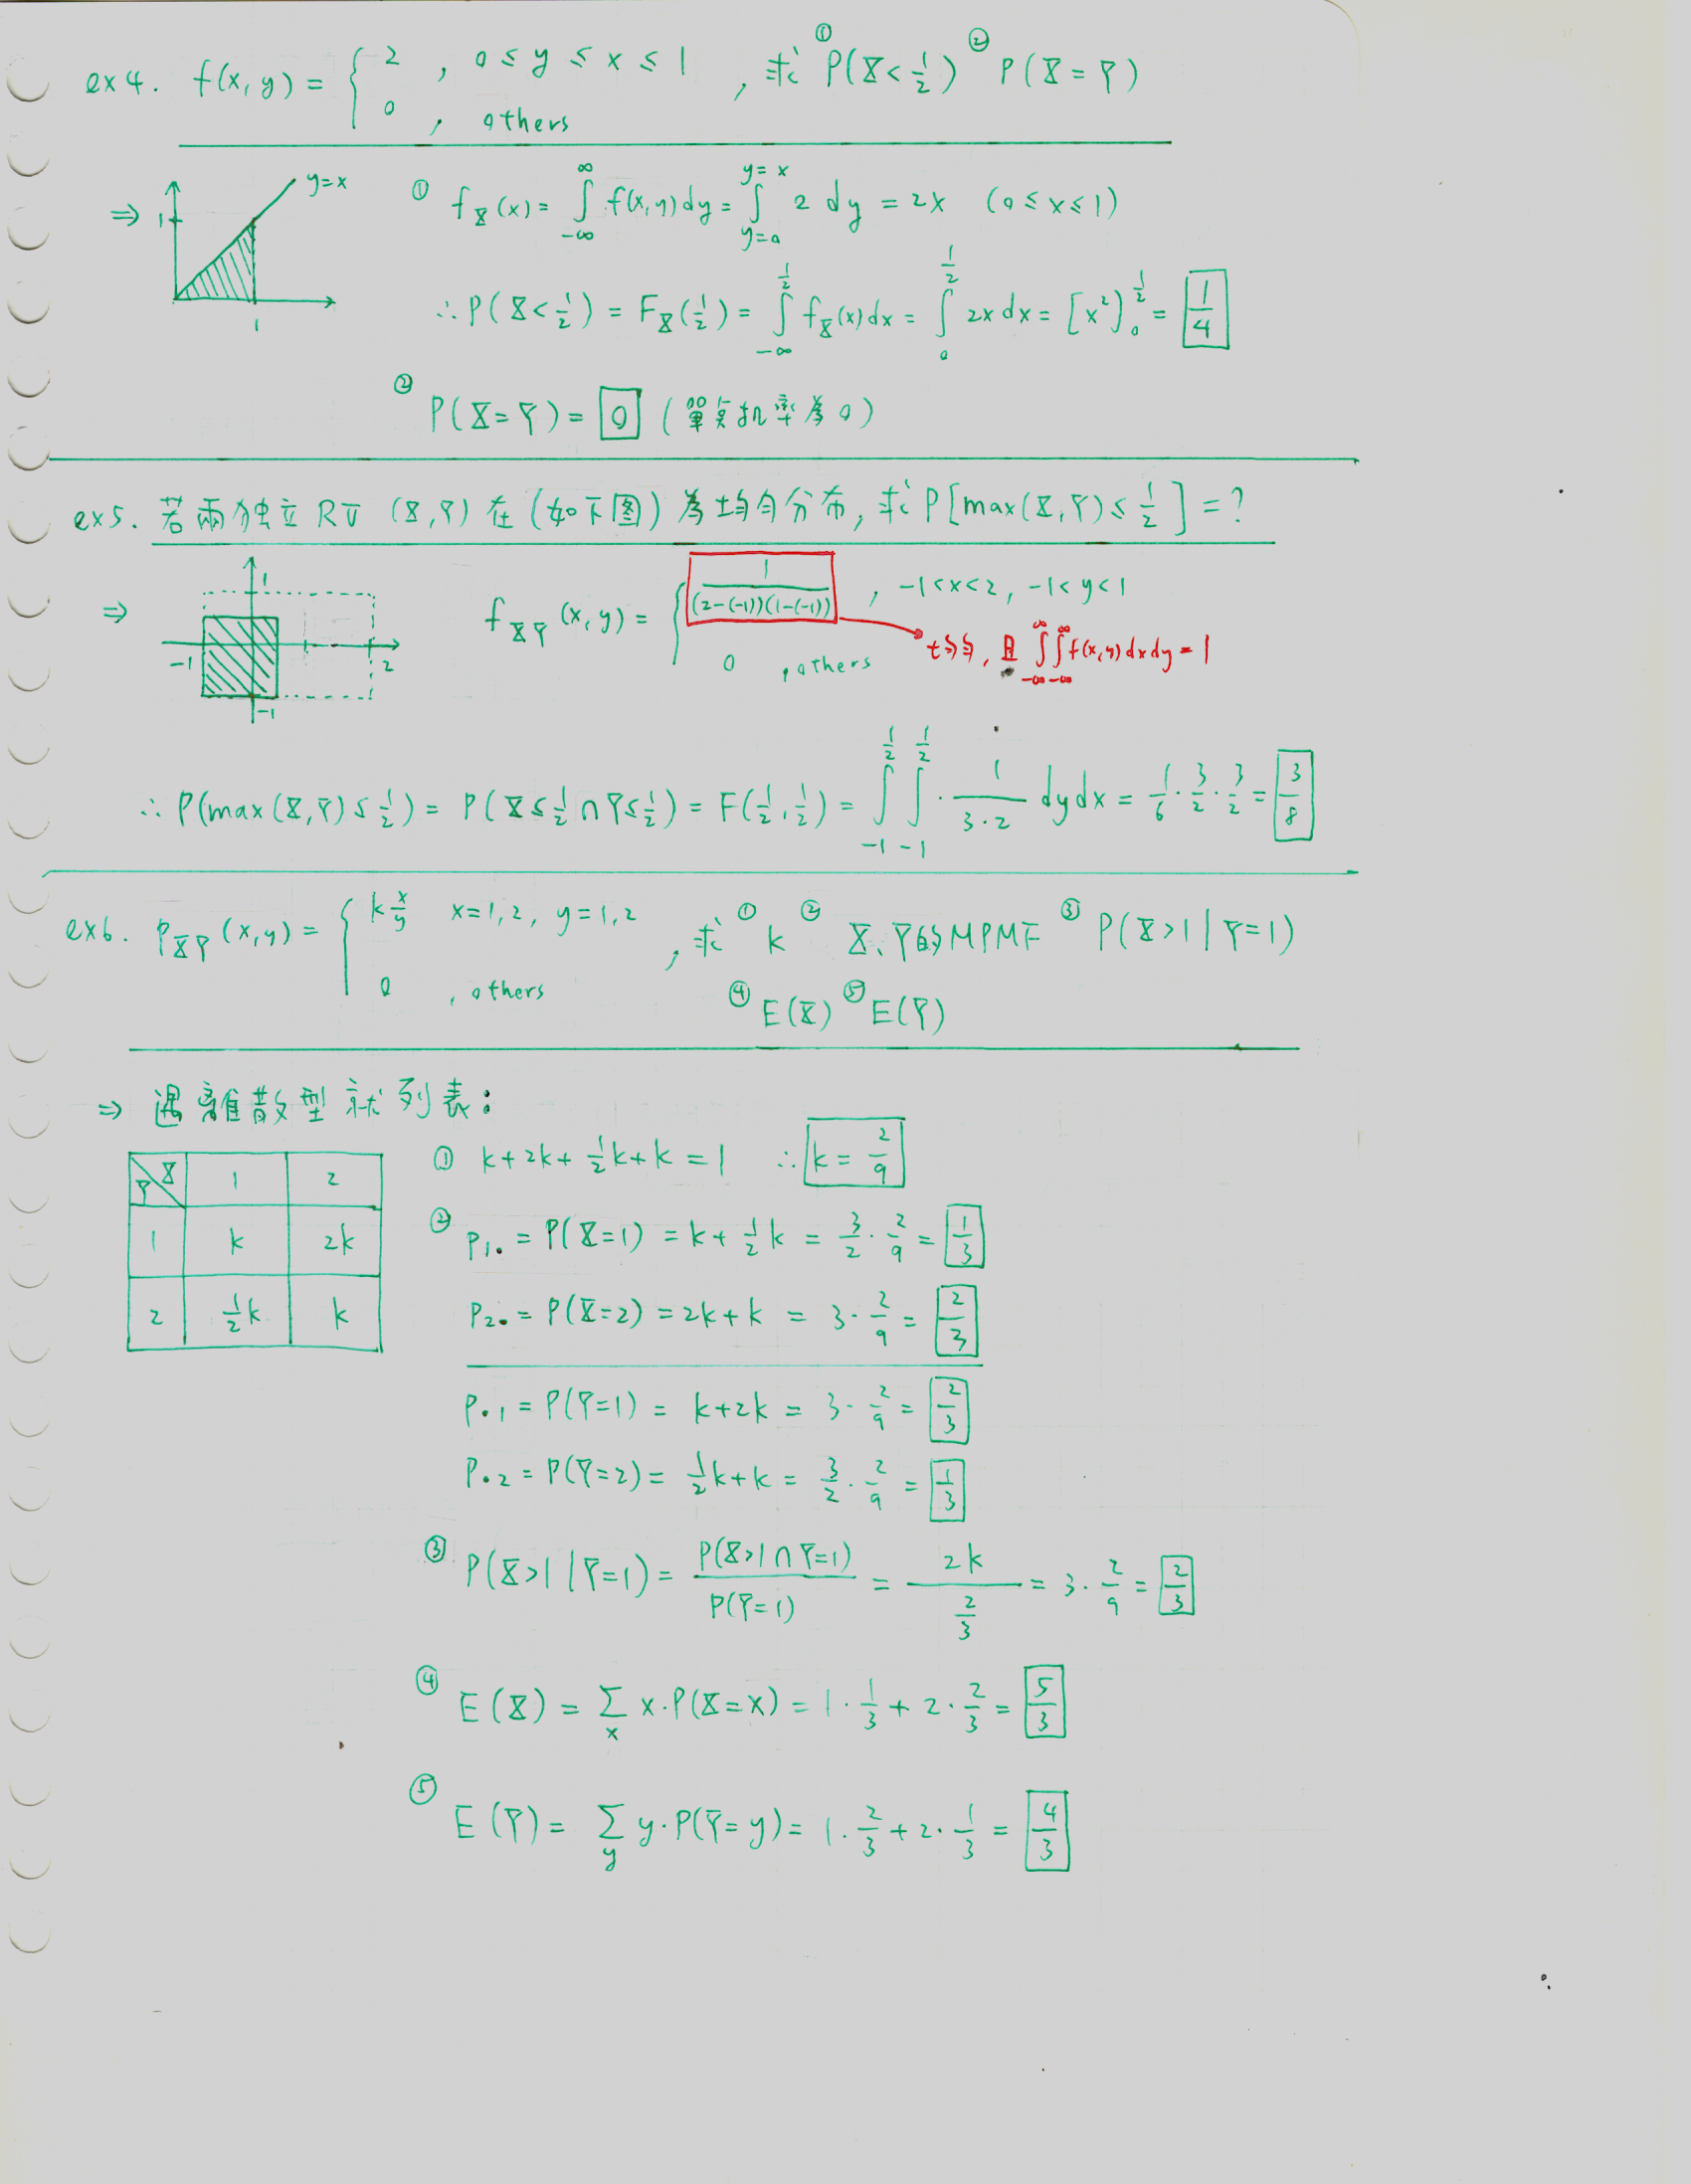 ex4. f(x,y) = { 2 , 0 ≤ y ≤ x ≤ 1 , 求 ① P(X<1/2) ② P(X=Y)
0 , others
⇒ 1 1 y=x
① f_X(x) = ∫_{-∞}^{∞} f(x,y)dy = ∫_{y=0}^{y=x} 2 dy = 2x (0≤x≤1)
∴ P(X<1/2) = F_X(1/2) = ∫_{-∞}^{1/2} f_X(x)dx = ∫_0^{1/2} 2x dx = [x²]_0^{1/2} = 1/4
② P(X=Y) = 0 (單點机率為0)
ex5. 若兩独立 RV (X,Y) 在 (如下图) 為均匀分布, 求 P[max(X,Y) ≤ 1/2] = ?
⇒ 1 -1 2 -1
f_XY(x,y) = { 1/((2-(-1))(1-(-1))) , -1<x<2, -1<y<1
0 , others
且 ∫_{-∞}^{∞}∫_{-∞}^{∞} f(x,y)dxdy = 1
∴ P(max(X,Y) ≤ 1/2) = P(X≤1/2 ∩ Y≤1/2) = F(1/2,1/2) = ∫_{-1}^{1/2}∫_{-1}^{1/2} · 1/(3·2) dydx = 1/6 · 3/2 · 3/2 = 3/8
ex6. P_XY(x,y) = { k x/y x=1,2, y=1,2 , 求 ① k ② X、Y的MPMF ③ P(X>1|Y=1)
0 , others ④ E(X) ⑤ E(Y)
⇒ 遇離散型就列表:
Y X 1 2
1 k 2k
2 1/2k k
① k+2k+1/2k+k = 1 ∴ k = 2/9
② P1• = P(X=1) = k+1/2k = 3/2 · 2/9 = 1/3
P2• = P(X=2) = 2k+k = 3 · 2/9 = 2/3
P•1 = P(Y=1) = k+2k = 3 · 2/9 = 2/3
P•2 = P(Y=2) = 1/2k+k = 3/2 · 2/9 = 1/3
③ P(X>1|Y=1) = P(X>1∩Y=1)/P(Y=1) = 2k/(2/3) = 3 · 2/9 = 2/3
④ E(X) = Σ_x x·P(X=x) = 1·1/3+2·2/3 = 5/3
⑤ E(Y) = Σ_y y·P(Y=y) = 1·2/3+2·1/3 = 4/3